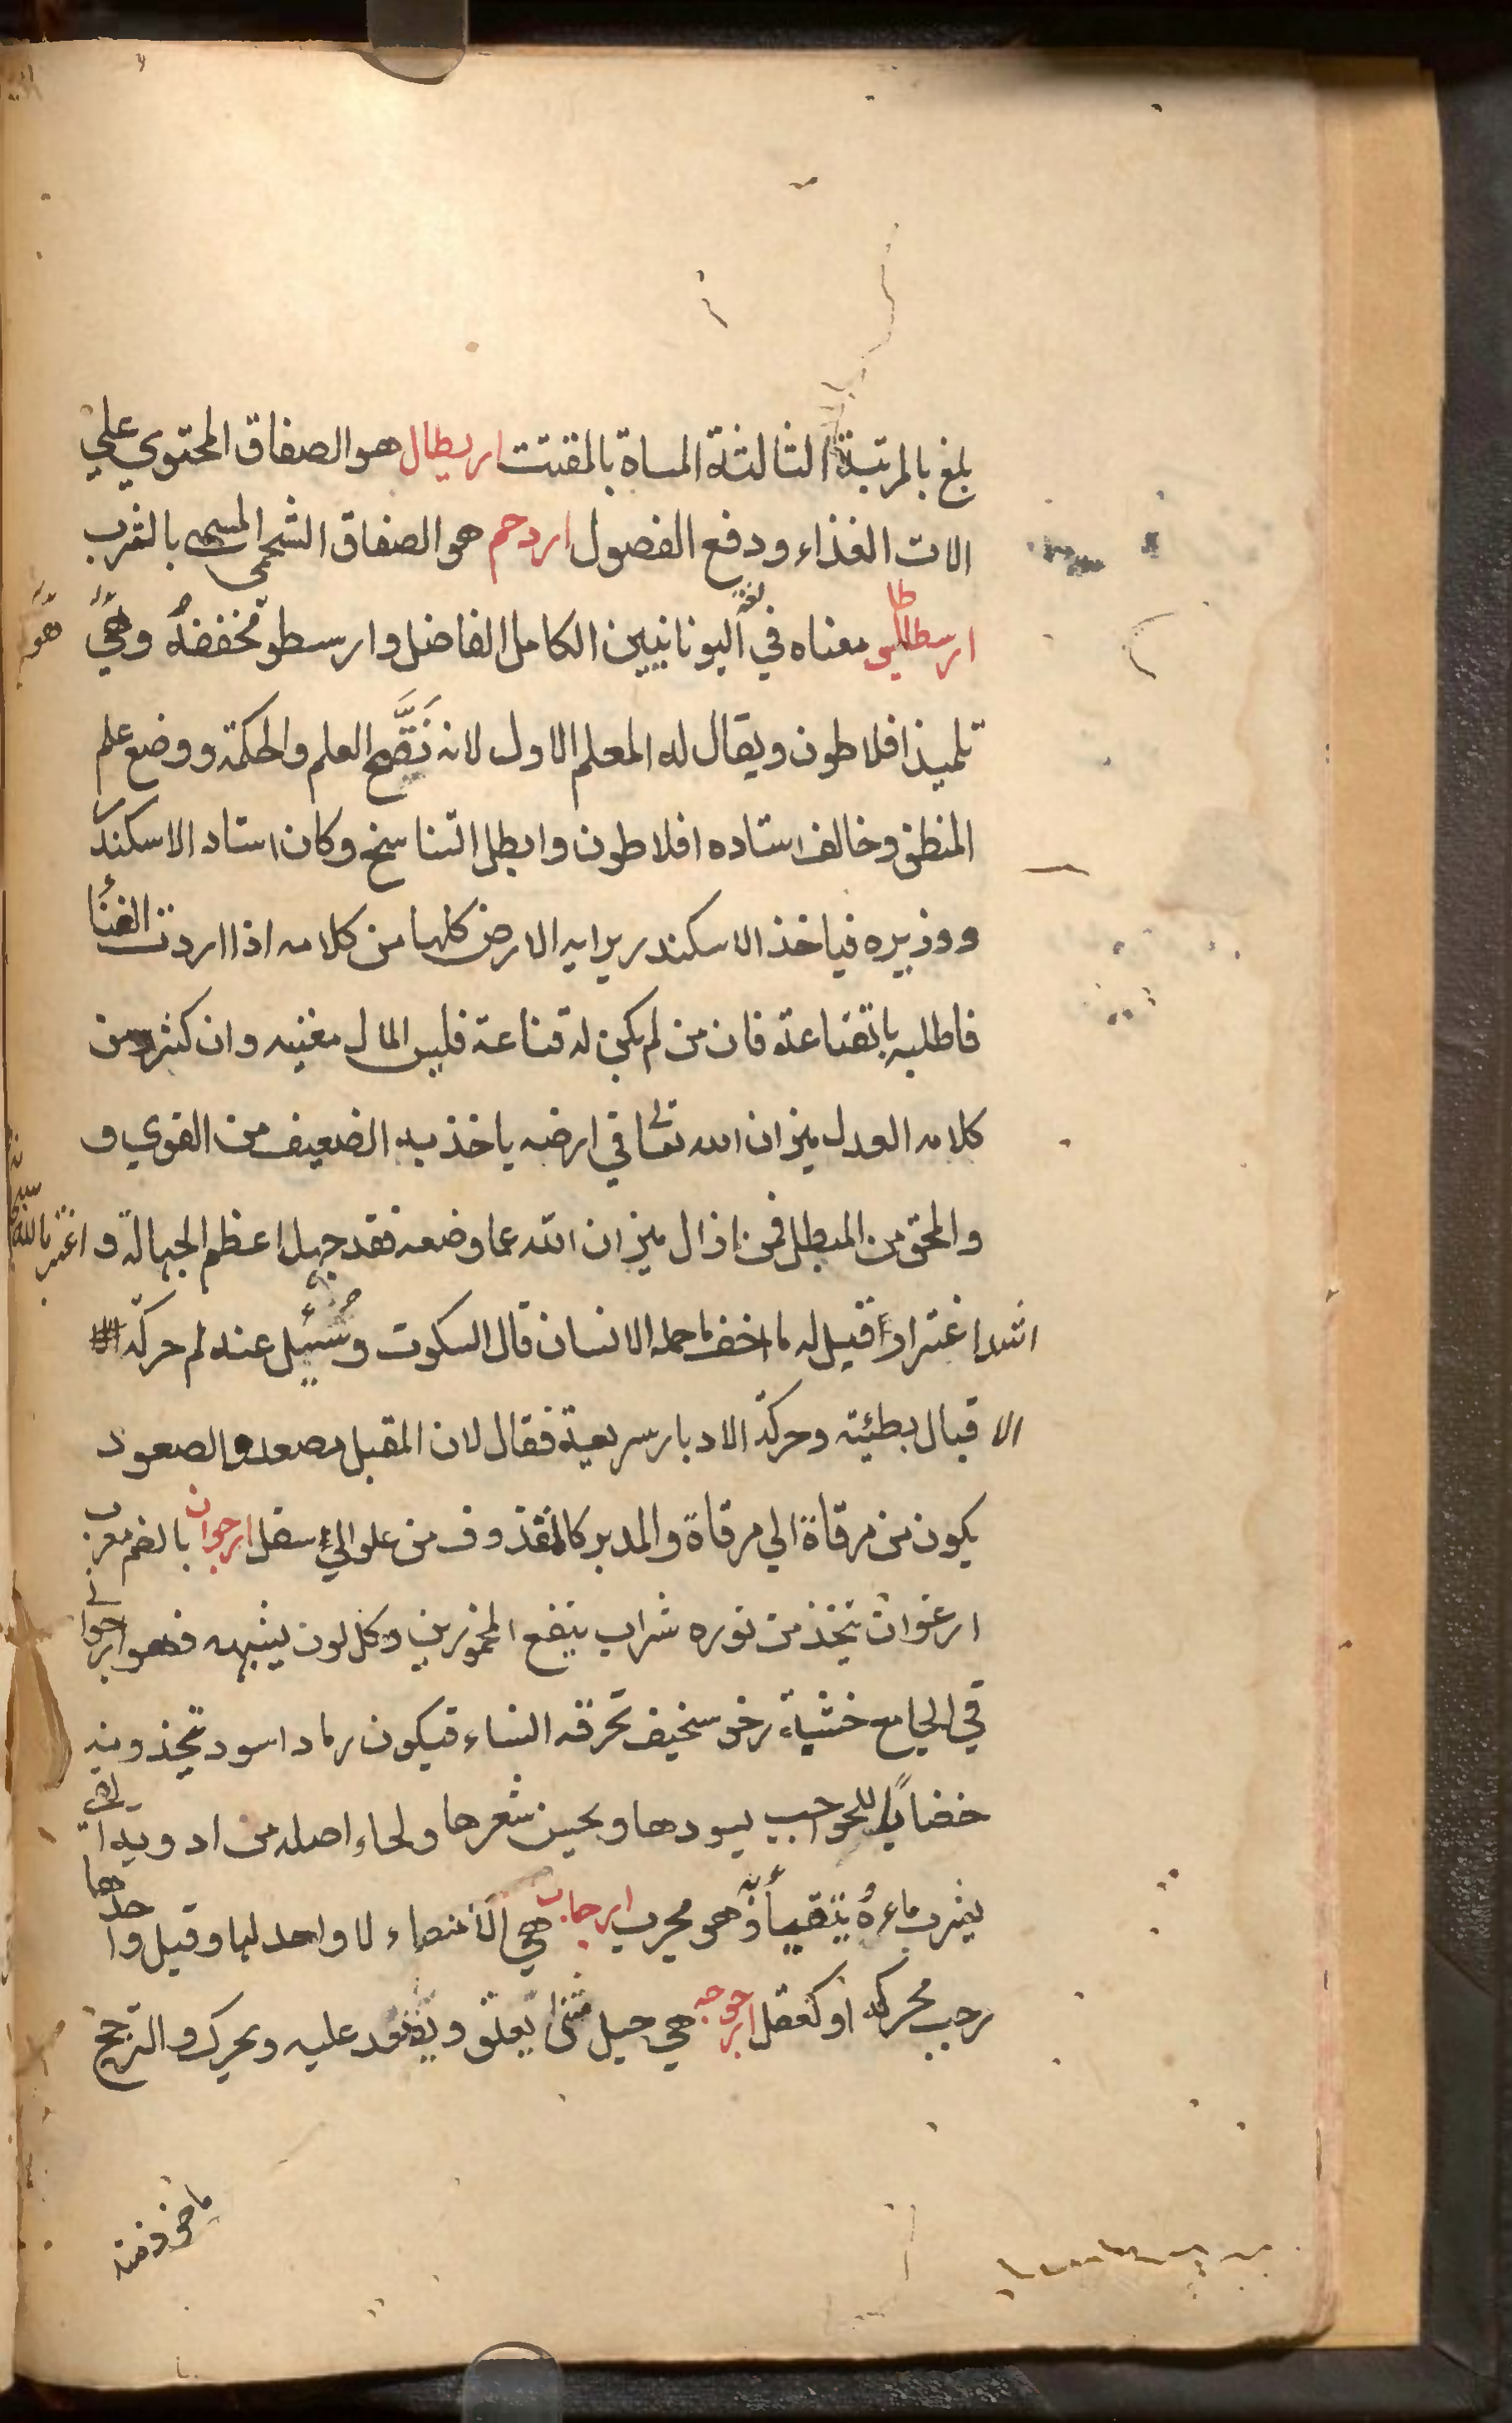 بلغ بالمرتبة الثالثة المساة بالمفتت اربطال هو الصفاق المحتوي علي
الات الغذاء ودفع الفصول اردحم هو الصفاق الشحمي المسمى بالثرب
ارسطاطاليس معناه في لغة اليونانيين الكامل الفاضل وارسطو مخففه وهي
تلميذ افلاطون ويقال له المعلم الاول لانه نقح العلم والحكمة ووضع علم
المنطق وخالف استاده افلاطون وابطل التناسخ وكان استاد الاسكندر
ووزيره فياخذ الاسكندر برايه الارض كلها من كلامه اذا اردت الغنا
فاطلبه باتقناعة فان من لم يكن له قناعة فليس المال مغنيه وان كثر ومن
كلامه العدل ميزان الله تعالى في ارضه ياخذ به الضعيف من القوي و
والمحق من المبطل فمن ازال ميزان الله عما وضعه فقد جهل اعظم الجهالة و اغتر بالله سبحانه
اشد اغترارا قيل له ما اخف ما حمله الانسان قال السكوت وسئيل عنه لم حركة
الاقبال بطيئة وحركة الادبار سريعة فقال لان المقبل مصعد والصعود
يكون من مرقاة الي مرقاة والمدبر كالمقذوف من علو الي سفل ارجوان بالضم معرب
ارغوان تتخذ من نوره شراب ينفع المخمورين وكل لون يشبهه فهو ارجواني
في الجامع خشبه رخو سخيف تحرقه النساء فيكون رماد اسود تتخذ ومنه
خضابا للحواجب يسودها ويحسن شعرها ولحاء اصله من ادوية القي
يشرب ماءه يتقيأ به وهو مجرب ارجاب هي الأمعاء لا واحد لها وقيل واحدها
رجب محركه او كقفل ارجوحه هي حبل مثنى يعلق ويقعد عليه ويحرك والترجح
ماخوذ منه